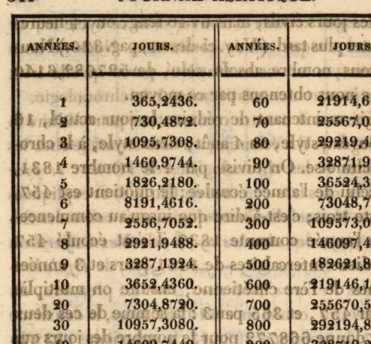 ANNÉES. JOURS. ANNÉES. JOURS
1 365,2436. 60 21914,6
2 730,4872. 70 25567,0
3 1095,7308. 80 29219,4
4 1460,9744. 90 32871,9
5 1826,2180. 100 36524,3
6 8191,4616. 200 73048,7
7 2556,7052. 300 109573,0
8 2921,9488. 400 146097,4
9 3287,1924. 500 182621,8
10 3652,4360. 600 219146,1
20 7304,8720. 700 255670,5
30 10957,3080. 800 292194,8